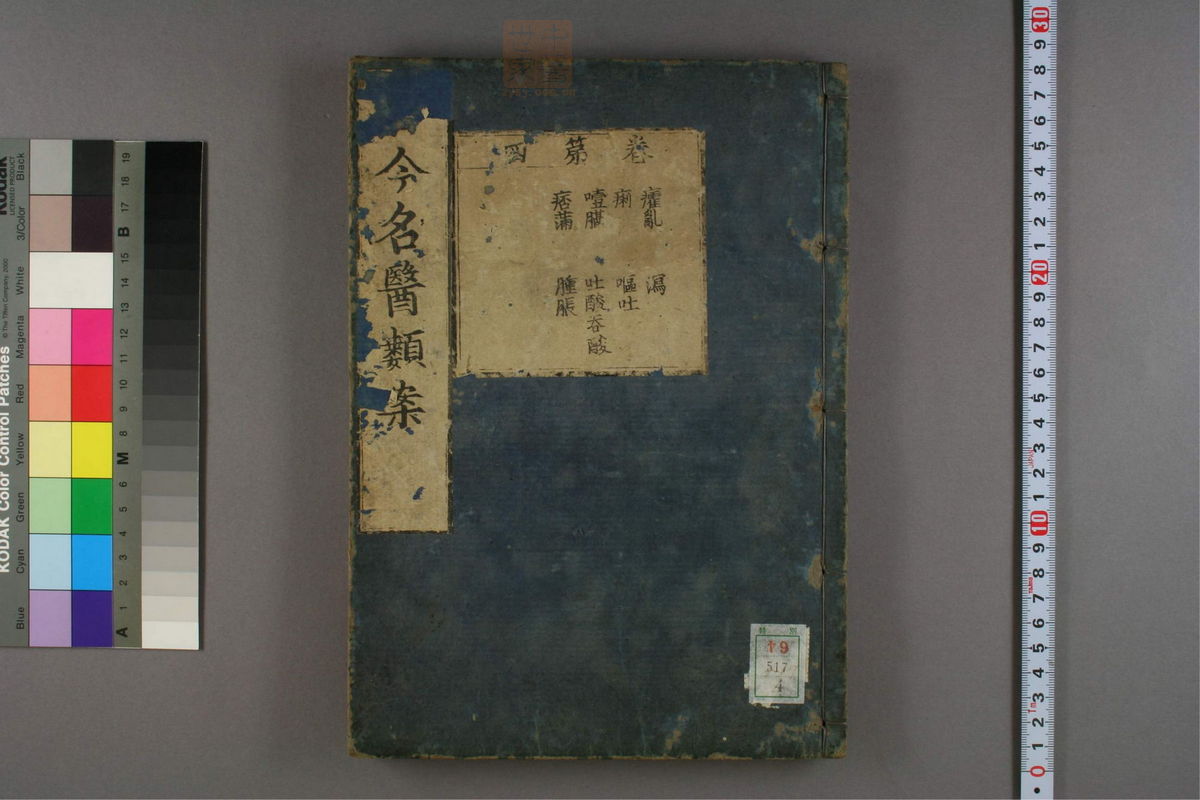 今名醫類案
卷第四
癨亂 瀉
痢 嘔吐
噎膈 吐酸吞酸
痞滿 腫脹
特別
19
517
4
KODAK Color Control Patches
© The Tiffen Company, 2000
Kodak
LICENSED PRODUCT
Blue
Cyan
Green
Yellow
Red
Magenta
White
3/Color
Black
A 1 2 3 4 5 6 M 8 9 10 11 12 13 14 15 B 17 18 19
0 1 2 3 4 5 6 7 8 9 10 1 2 3 4 5 6 7 8 9 20 1 2 3 4 5 6 7 8 9 30